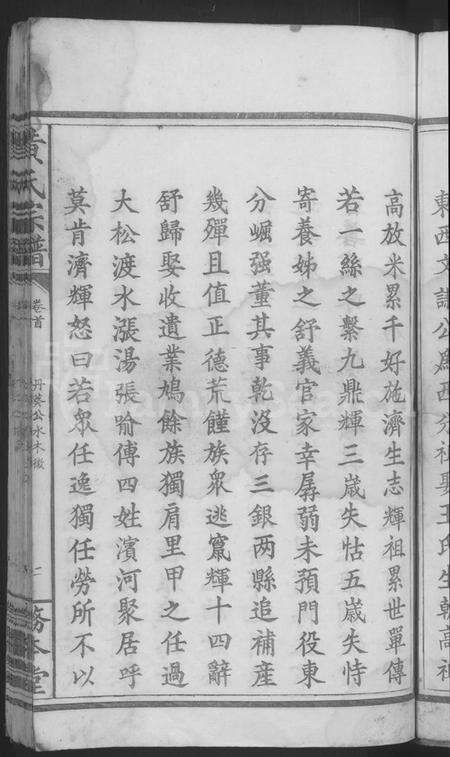 東西文
公爲西分祖娶王氏生朝高祖
高放米累千好施濟生志輝祖累世單傳
若一絲之繫九鼎輝三歲失怙五歲失恃
寄養姊之舒義官家幸孱弱未預門役東
分崛强董其事乾没存三銀两縣追補產
幾殫且值正德荒饉族衆逃竄輝十四辭
舒歸娶收遺業鳩餘族獨肩里甲之任過
大松渡水漲湯張喻傅四姓濱河聚居呼
莫肯濟輝怒曰若衆任逸獨任勞所不以
黃氏宗譜
卷首
二
務本堂
FamilySearch